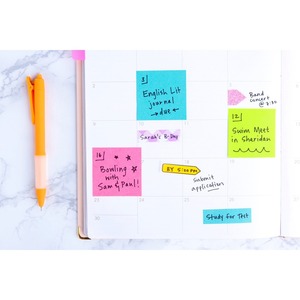 3
English Lit
journal
→due←
Band
concert
@ 7:30
Sarah's B-Day
12
Swim Meet
in Sheridan
16
Bowling
with
Sam & Paul!
BY 5:00 PM
submit
application
Study for Test